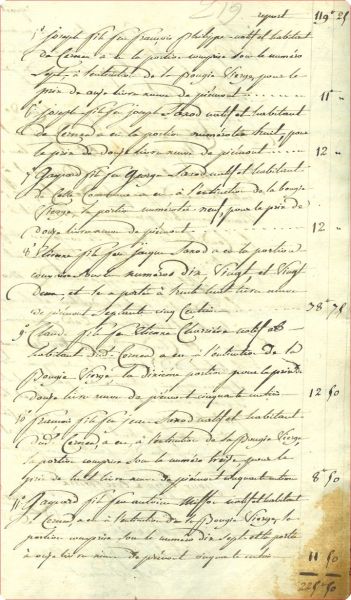 219
report 119 25
5° joseph fils feu françois philippe natif et habitant
de Cernex a eu la portion comprise sous le numéro
Sept, à l'extinction de la Bougie Vierge, pour le
prix de onze livres neuve de piémont 11 "
6° joseph fils feu joseph natif et habitant
de Cernex a eu la portion numérotée huit, pour
le prix de douze livres neuve de piémont 12 "
7° Gaspard fils feu George natif et habitant
de cette Commune a eu à l'extinction de la bougie
Vierge, la portion numérotée neuf, pour le prix de
douze livres neuves de piémont 12 "
8° Etienne fils feu jacques a eu la portion
comprise sous numéros dix, Vingt et Vingt
Deux, et se a porté à trente huit livres neuve
de piémont septante cinq Centimes 38 75
9° Claude fils feu Etienne natif et
habitant dud. Cernex a eu à l'extinction de la
Bougie Vierge la dixième portion pour le prix de
Douze livres neuve de piémont cinquante centimes 12 50
10° françois fils feu jean natif et habitant
dud. Cernex a eu, à l'extinction de la Bougie Vierge,
la portion comprise sous le numéro pour le
prix de huit livres neuve de piémont cinquante centimes 8 50
11° Gaspard fils feu antoine natif et habitant
de Cernex a eu à l'extinction de la Bougie Vierge, la
portion comprise sous le numéro dix sept et le porte
à onze livres neuve de piémont cinquante centimes 11 50
225 50